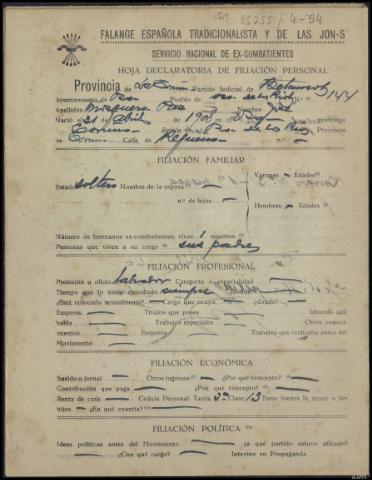 65255 / 4-54
FALANGE ESPAÑOLA TRADICIONALISTA Y DE LAS JON-S
SERVICIO NACIONAL DE EX-COMBATIENTES
HOJA DECLARATORIA DE FILIACIÓN PERSONAL
Provincia de La Coruña Partido Judicial de Betanzos
Ayuntamiento de Pueblo de N.º 144
Apellidos Mosquera Nombre José
Nació el 21 de Abril de 1908 en provincia
Coruña Residente en provincia
Coruña Calle de N.º
FILIACIÓN FAMILIAR
Estado soltero Nombre de la esposa
Varones - Edades
n.º de hijos
Hembras - Edades
Número de hermanos ex-combatientes: vivos 1 muertos
Personas que viven a su cargo sus padres
FILIACIÓN PROFESIONAL
Profesión u oficio labrador Categoría o especialidad
Tiempo que lo viene ejerciendo siempre
¿Está colocado actualmente? Cargo que ocupa ¿dónde?
Empresa Títulos que posee Idiomas que
habla Trabajos especiales Otros conoci-
mientos. Empresa Trabajos que realizaba antes del
Movimiento
FILIACIÓN ECONÓMICA
Sueldo o jornal Otros ingresos ¿Por qué concepto?
Contribución que paga ¿Por qué concepto?
Renta de casa Cédula Personal: Tarifa 3ª Clase 13 Tiene bienes la mujer o los
hijos ¿En qué cuantía?
FILIACIÓN POLÍTICA
Ideas políticas antes del Movimiento ¿a qué partido estuvo afiliado?
¿Con qué cargo? Intervino en Propaganda